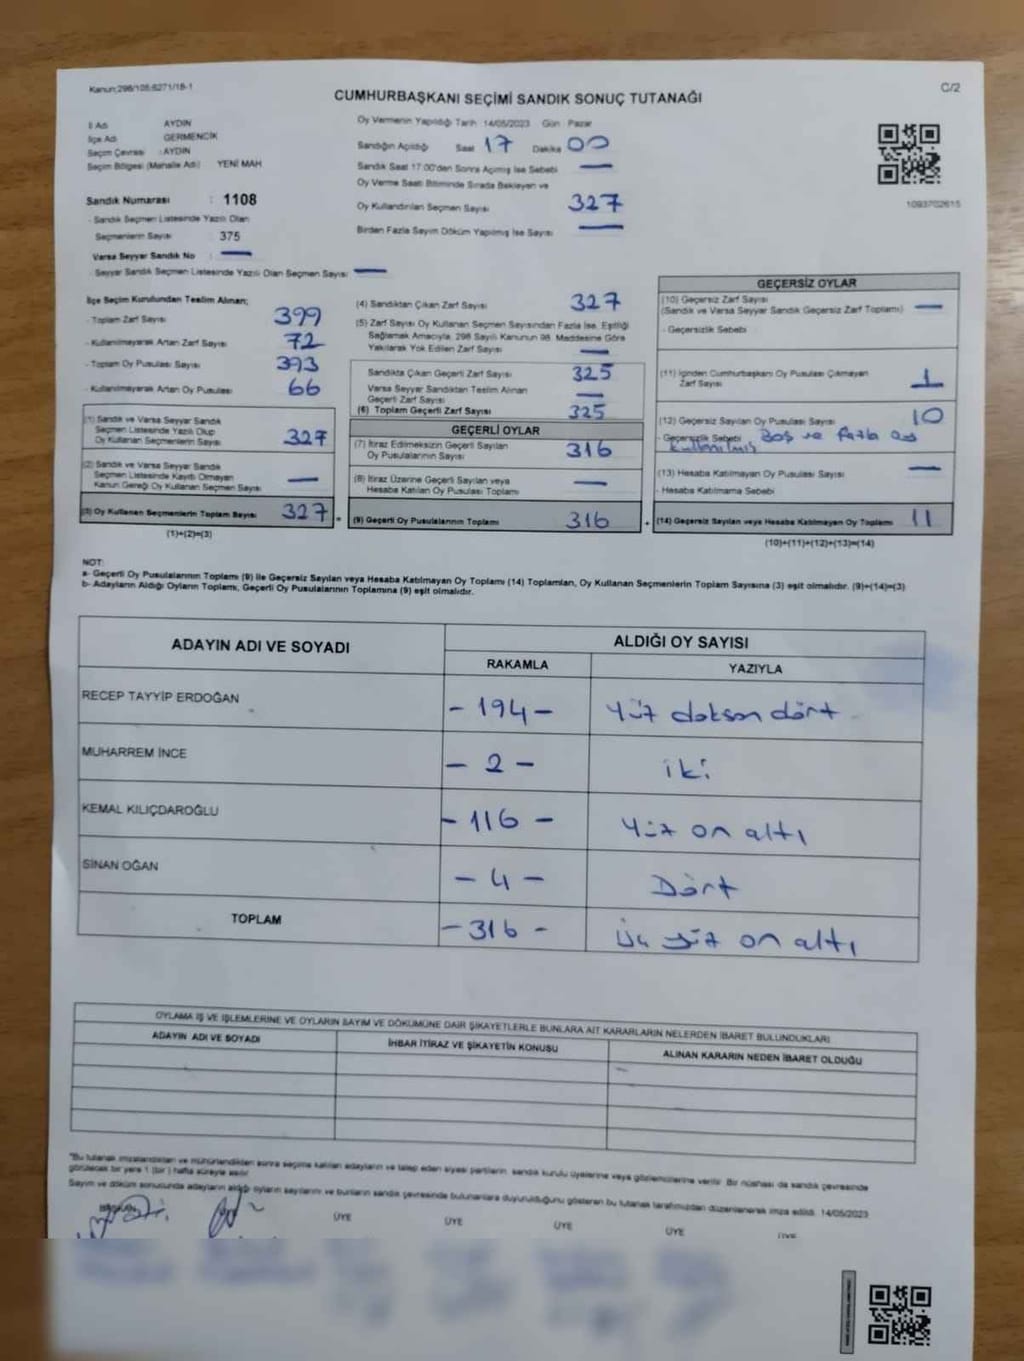 Kanun:298/105;6271/18-1
C/2
CUMHURBAŞKANI SEÇİMİ SANDIK SONUÇ TUTANAĞI
İl Adı AYDIN
İlçe Adı GERMENCİK
Seçim Çevresi : AYDIN
Seçim Bölgesi (Mahalle Adı) YENİ MAH
Sandık Numarası : 1108
- Sandık Seçmen Listesinde Yazılı Olan
Seçmenlerin Sayısı : 375
Varsa Seyyar Sandık No : —
- Seyyar Sandık Seçmen Listesinde Yazılı Olan Seçmen Sayısı: —
Oy Vermenin Yapıldığı Tarih : 14/05/2023 Gün : Pazar
Sandığın Açıldığı Saat 17 Dakika 00
Sandık Saat 17.00'den Sonra Açımış İse Sebebi —
Oy Verme Saati Bitiminde Sırada Bekleyen ve
Oy Kullandırılan Seçmen Sayısı 327
Birden Fazla Sayım Döküm Yapılmış İse Sayısı —
1093702615
İlçe Seçim Kurulundan Teslim Alınan;
- Toplam Zarf Sayısı 399
- Kullanılmayarak Artan Zarf Sayısı 72
- Toplam Oy Pusulası Sayısı 393
- Kullanılmayarak Artan Oy Pusulası 66
(1) Sandık ve Varsa Seyyar Sandık
Seçmen Listesinde Yazılı Olup
Oy Kullanan Seçmenlerin Sayısı 327
(2) Sandık ve Varsa Seyyar Sandık
Seçmen Listesinde Kayıtlı Olmayan
Kanun Gereği Oy Kullanan Seçmen Sayısı —
(3) Oy Kullanan Seçmenlerin Toplam Sayısı 327
(1)+(2)=(3)
(4) Sandıktan Çıkan Zarf Sayısı 327
(5) Zarf Sayısı Oy Kullanan Seçmen Sayısından Fazla İse, Eşitliği
Sağlamak Amacıyla, 298 Sayılı Kanunun 98. Maddesine Göre
Yakılarak Yok Edilen Zarf Sayısı —
Sandıkta Çıkan Geçerli Zarf Sayısı 325
Varsa Seyyar Sandıktan Teslim Alınan
Geçerli Zarf Sayısı —
(6) Toplam Geçerli Zarf Sayısı 325
GEÇERLİ OYLAR
(7) İtiraz Edilmeksizin Geçerli Sayılan
Oy Pusulalarının Sayısı 316
(8) İtiraz Üzerine Geçerli Sayılan veya
Hesaba Katılan Oy Pusulası Toplamı —
(9) Geçerli Oy Pusulalarının Toplamı 316
GEÇERSİZ OYLAR
(10) Geçersiz Zarf Sayısı
(Sandık ve Varsa Seyyar Sandık Geçersiz Zarf Toplamı) —
- Geçersizlik Sebebi
(11) İçinden Cumhurbaşkanı Oy Pusulası Çıkmayan
Zarf Sayısı 1
(12) Geçersiz Sayılan Oy Pusulası Sayısı 10
- Geçersizlik Sebebi Boş ve fazla oy
kullanılmış
(13) Hesaba Katılmayan Oy Pusulası Sayısı —
- Hesaba Katılmama Sebebi
(14) Geçersiz Sayılan veya Hesaba Katılmayan Oy Toplamı 11
(10)+(11)+(12)+(13)=(14)
NOT:
a- Geçerli Oy Pusulalarının Toplamı (9) ile Geçersiz Sayılan veya Hesaba Katılmayan Oy Toplamı (14) Toplamları, Oy Kullanan Seçmenlerin Toplam Sayısına (3) eşit olmalıdır. (9)+(14)=(3)
b- Adayların Aldığı Oyların Toplamı, Geçerli Oy Pusulalarının Toplamına (9) eşit olmalıdır.
ADAYIN ADI VE SOYADI
ALDIĞI OY SAYISI
RAKAMLA YAZIYLA
RECEP TAYYİP ERDOĞAN - 194 - Yüz doksan dört
MUHARREM İNCE - 2 - iki
KEMAL KILIÇDAROĞLU - 116 - Yüz on altı
SİNAN OĞAN - 4 - Dört
TOPLAM - 316 - Üç yüz on altı
OYLAMA İŞ VE İŞLEMLERİNE VE OYLARIN SAYIM VE DÖKÜMÜNE DAİR ŞİKAYETLERLE BUNLARA AİT KARARLARIN NELERDEN İBARET BULUNDUKLARI
ADAYIN ADI VE SOYADI İHBAR İTİRAZ VE ŞİKAYETİN KONUSU ALINAN KARARIN NEDEN İBARET OLDUĞU
*Bu tutanak imzalandıktan ve mühürlendikten sonra seçime katılan adayların ve talep eden siyasi partilerin sandık kurulu üyelerine veya gözlemcilerine verilir. Bir nüshası da sandık çevresinde
görülecek bir yere 1 (bir) hafta süreyle asılır.
Sayım ve döküm sonucunda adayların aldığı oyların sayılarını ve bunların sandık çevresinde bulunanlara duyurulduğunu gösteren bu tutanak tarafımızdan düzenlenerek imza edildi. 14/05/2023
BAŞKAN ÜYE ÜYE ÜYE ÜYE ÜYE